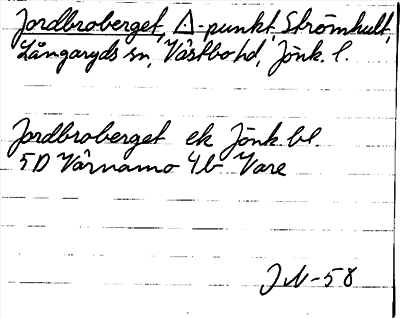 Jordbroberget, △-punkt, Strömhult,
Långaryds sn, Västbo hd, Jönk. l.
Jordbroberget ek Jönk bl.
5D Värnamo 4b Vare
JN-58